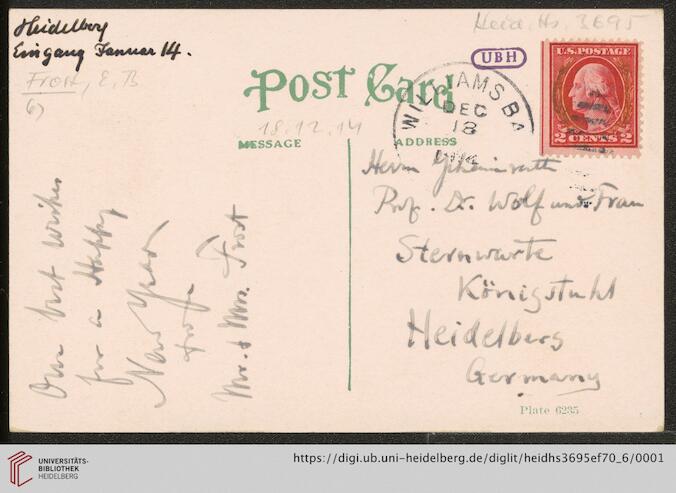 Heidelberg
Eingang Januar 14.
Frost, E. B
6)
Heid. Hs. 3695
UBH
U.S. POSTAGE
2 CENTS 2
Post Card
WILLIAMS BA
DEC
18
18.12.14
MESSAGE
ADDRESS
Our best wishes
for a Happy
New Year
Mr. & Mrs. Frost
Herrn Geheimrath
Prof. Dr. Wolf und Frau
Sternwarte
Königstuhl
Heidelberg
Germany
Plate 6235
UNIVERSITÄTS-
BIBLIOTHEK
HEIDELBERG
https://digi.ub.uni-heidelberg.de/diglit/heidhs3695ef70_6/0001